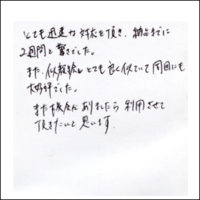 とても迅速な対応を頂き、納品までに
2週間と驚きでした。
また、似顔絵もとても良く似ていて周囲にも
大好評でした。
また機会がありましたら利用させて
頂きたいと思います。